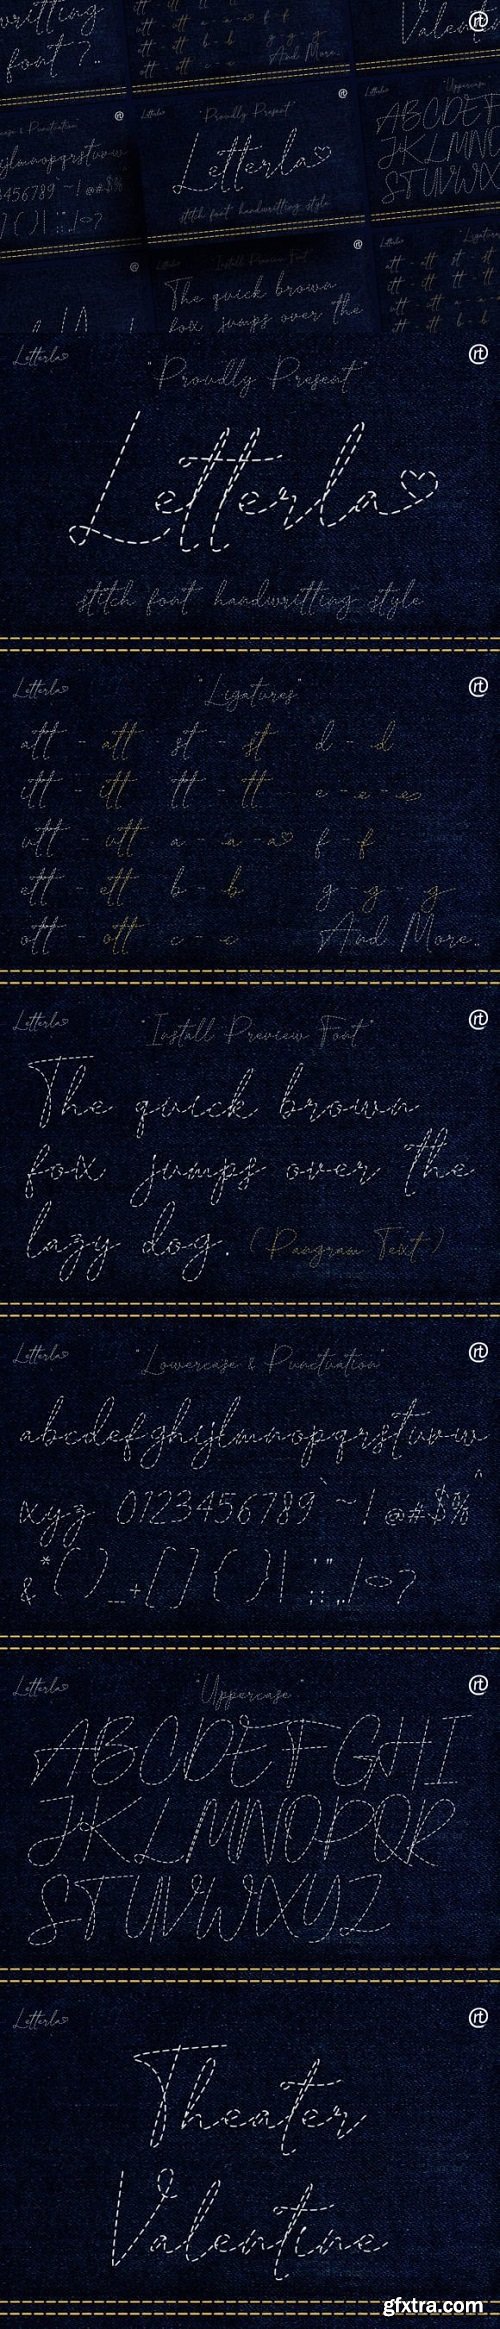 writting
font?..
att - att
ott - ott
a - a - a
b - b
c - c
f - f
g - g - g
And More..
Valent
rt
Lowercase & Punctuation
Letterla
"Proudly Present"
Letterla
stitch font handwritting style
"Uppercase"
ABCDEF
JKLMN
STUVWX
"Install Preview Font"
The quick brown
fox jumps over the
Letterla
rt
"Proudly Present"
Letterla
stitch font handwritting style
Letterla
rt
"Ligatures"
att - att st - st d - d
itt - itt tt - tt e - e - e
utt - utt a - a - a f - f
ett - ett b - b g - g - g
ott - ott c - c And More..
Letterla
rt
"Install Preview Font"
The quick brown
fox jumps over the
lazy dog. (Pangram Text)
Letterla
rt
"Lowercase & Punctuation"
abcdefghijlmnopqrstuvw
xyz 0123456789`~! @#$%^
&*()_+[]{}|:;'",./<>?
Letterla
rt
"Uppercase"
ABCDEFGHI
JKLMNOPQR
STUVWXYZ
Letterla
rt
Theater
Valentine
gfxtra.com